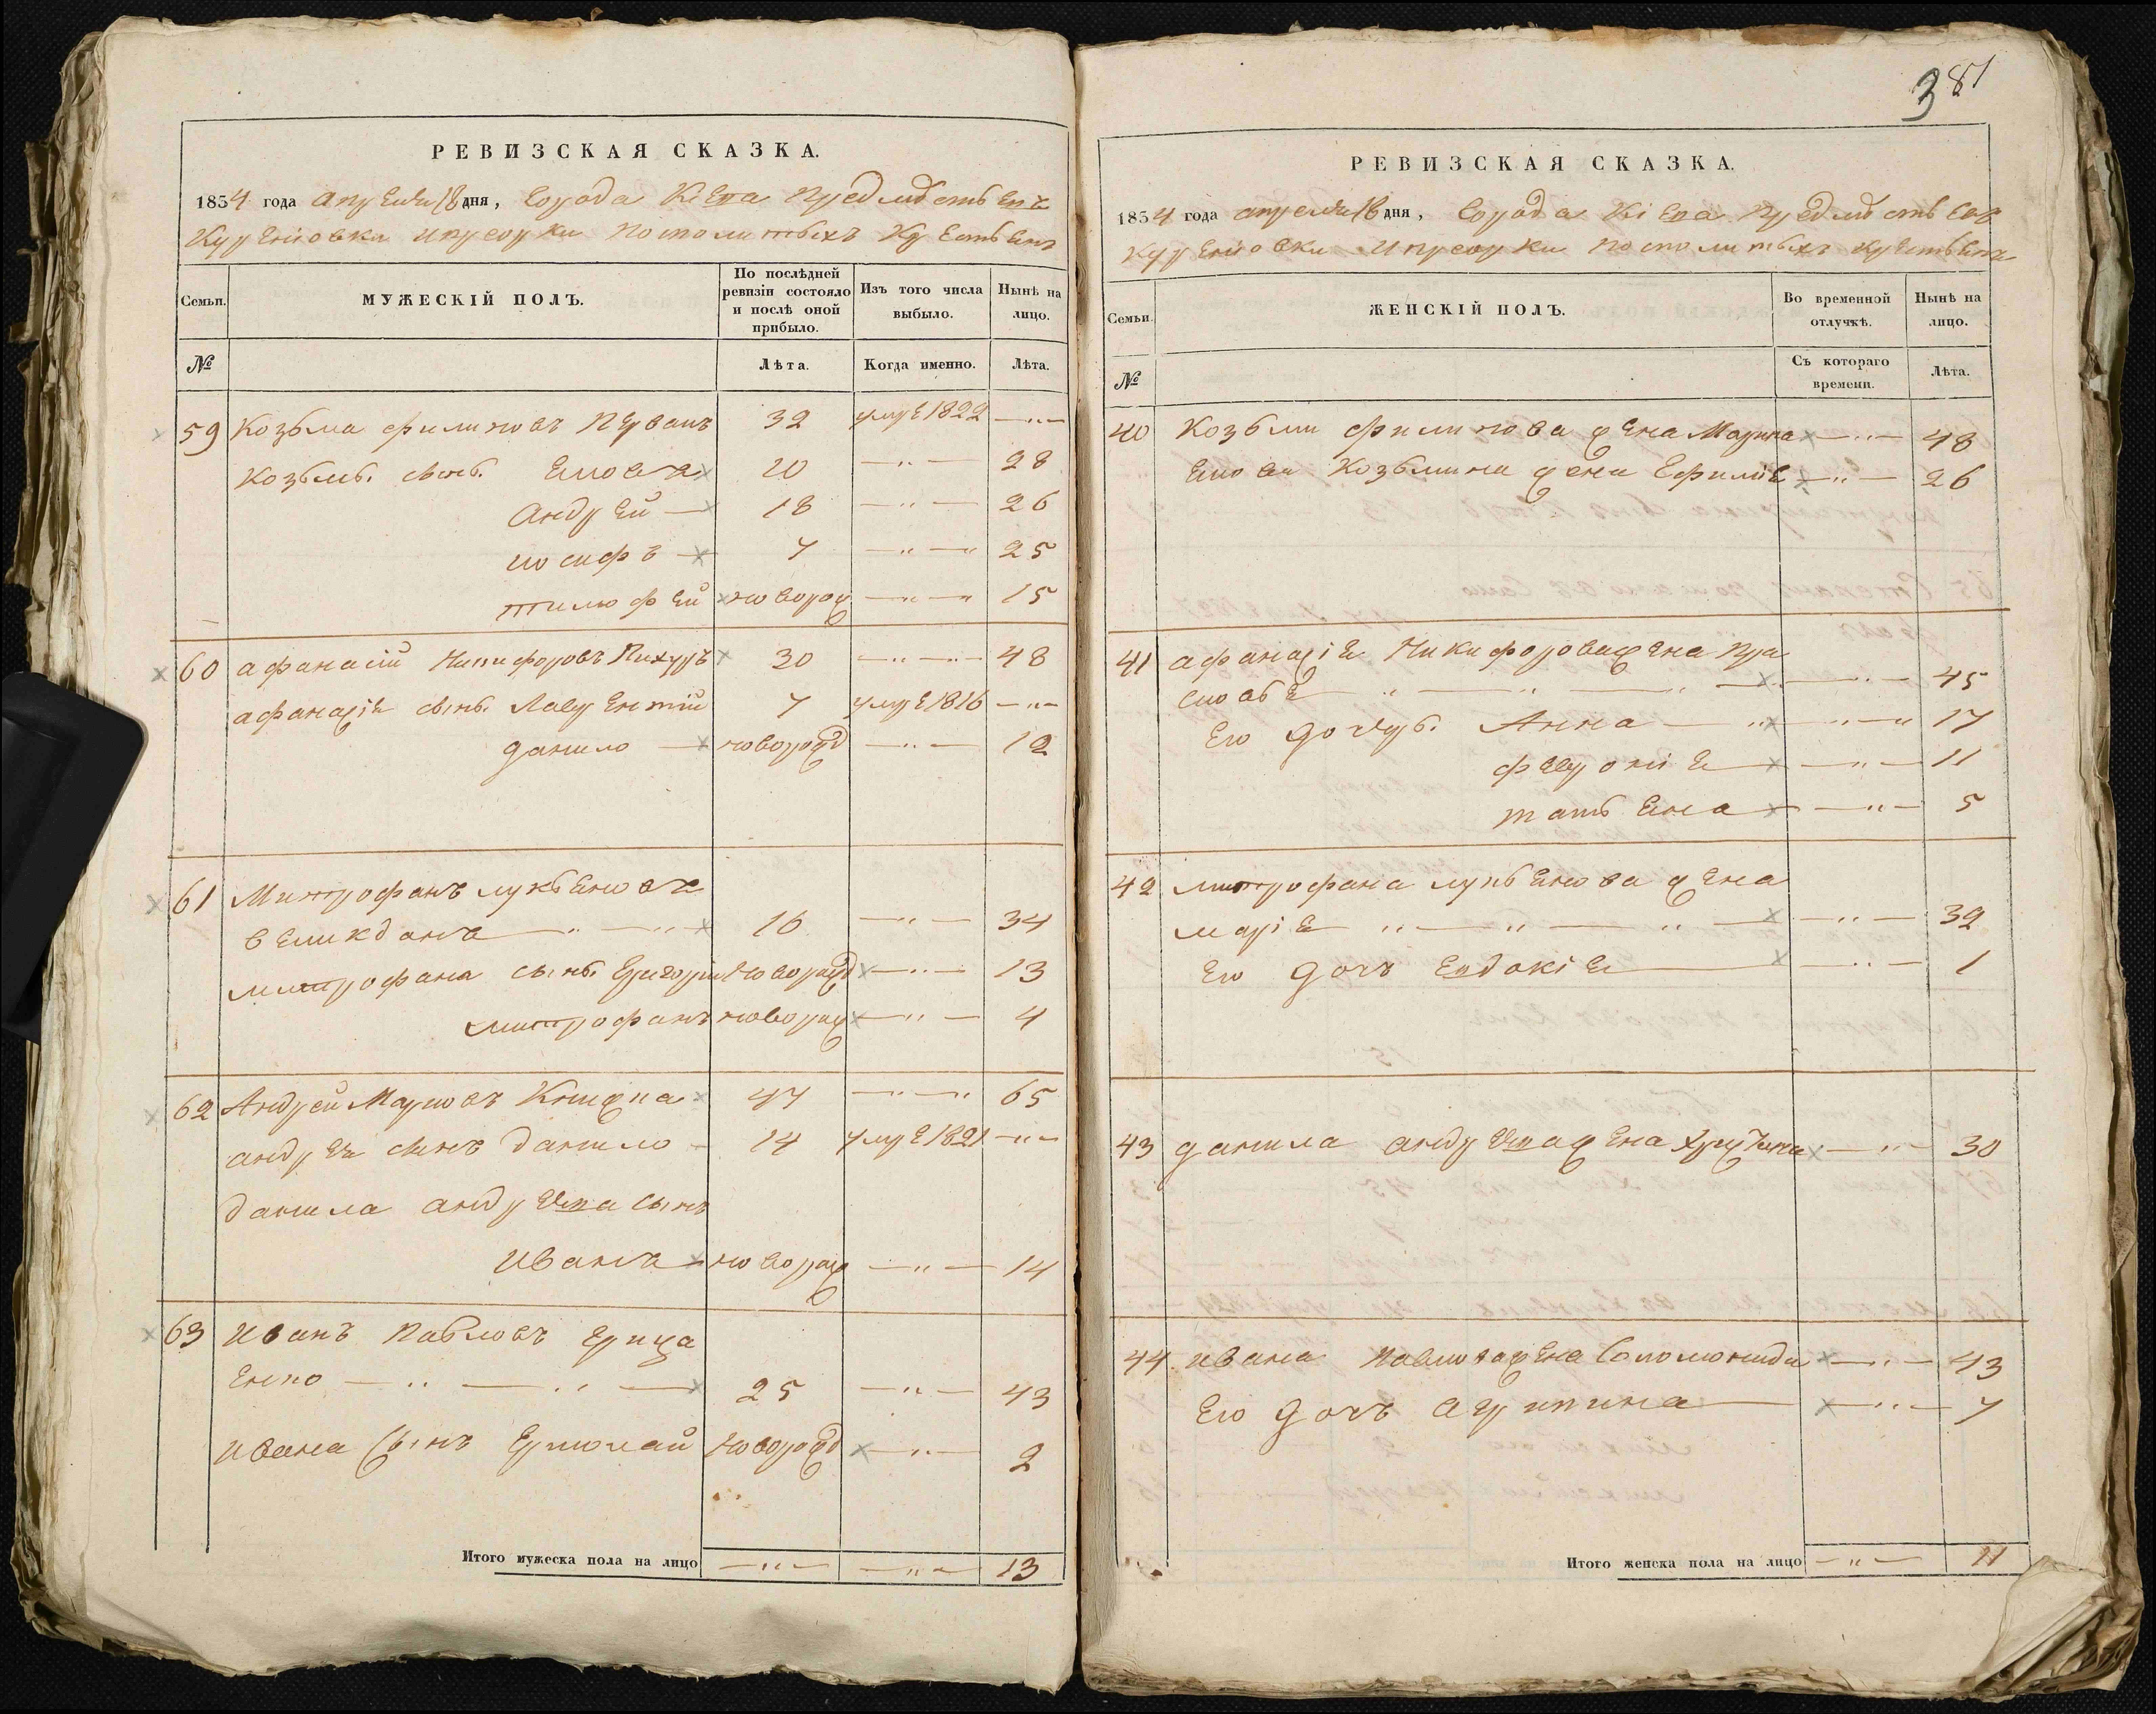 РЕВИЗСКАЯ СКАЗКА.
1834 года апреля 18 дня, города Кіева предмѣстьевъ
Куреніовки и Прсорки посполитыхъ крестьянъ
Семьи.
МУЖЕСКІЙ ПОЛЪ.
По послѣдней ревизіи состояло и послѣ оной прибыло.
Изъ того числа выбыло.
Нынѣ на лицо.
№
Лѣта.
Когда именно.
Лѣта.
59 Козьма Филиповъ 32 умре 1822 — „ —
Козьмы сыны 20 — „ — 28
Андрей — 18 — „ — 26
иосифъ — 7 — „ — 25
тимофей новорож — „ — 15
60 афанасій Никифоровъ Пихуръ 30 — „ — 48
афанасія сыны Лаврентій 7 умре 1816 — „ —
данило — новорожд — „ — 12
61 Митрофанъ лукьяновъ
великданъ — „ — „ — 16 — „ — 34
митрофана сыны Григорій новорожд — „ — 13
митрофанъ новорож — „ — 4
62 Андрей Марковъ 47 — „ — 65
андрея сынъ данило 14 умре 1821 — „ —
данила андреева сынъ
иванъ новорож — „ — 14
63 иванъ Павловъ грица
енко — „ — „ — 25 — „ — 43
ивана сынъ Ермолай новорожд — „ — 2
Итого мужеска пола на лицо — „ — — „ — 13
381
РЕВИЗСКАЯ СКАЗКА.
1834 года апреля 18 дня, города Кіева предмѣстьевъ
Куреніовки и Прсорки посполитыхъ крестьянъ
Семьи.
ЖЕНСКІЙ ПОЛЪ.
Во временной отлучкѣ.
Нынѣ на лицо.
№
Съ котораго времени.
Лѣта.
40 Козьми филипова жена Марина — „ — 48
Козьмина жена Ефимія — „ — 26
41 афанасія Никифорова жена Пра
сковья — „ — „ — „ — 45
Его дочери Анна — „ — „ — 17
февронія — „ — 11
татьяна — „ — 5
42 митрофана лукьянова жена
марія „ — „ — „ — — „ — 32
Его дочь Евдокія — „ — 1
43 данила андреева жена Христина — „ — 30
44 ивана Павлова жена Соломонида — „ — 43
Его дочь агрипина — „ — 7
Итого женска пола на лицо — „ — 11